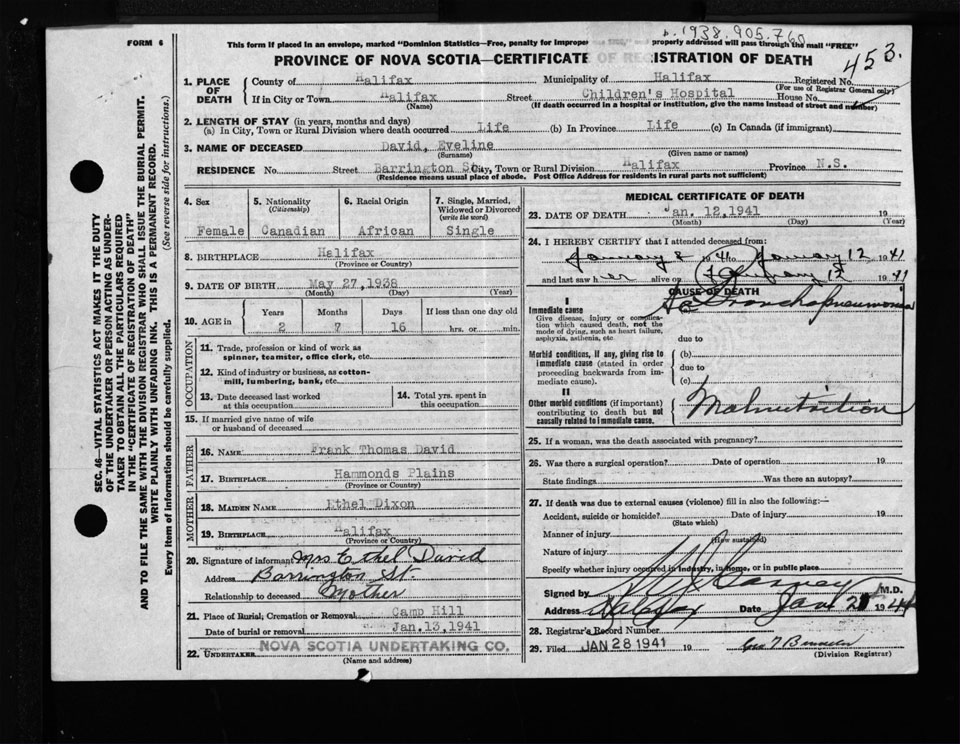 FORM 6
b. 1938.905.760
453.
This form if placed in an envelope, marked "Dominion Statistics—Free, penalty for improper use $300," and properly addressed will pass through the mail "FREE"
PROVINCE OF NOVA SCOTIA—CERTIFICATE OF REGISTRATION OF DEATH
1. PLACE OF DEATH
County of Halifax Municipality of Halifax Registered No.
(For use of Registrar General only)
If in City or Town Halifax Street Children's Hospital House No.
(Name) (If death occurred in a hospital or institution, give the name instead of street and number)
2. LENGTH OF STAY (in years, months and days)
(a) In City, Town or Rural Division where death occurred Life (b) In Province Life (c) In Canada (if immigrant)
3. NAME OF DECEASED David, Eveline
(Surname) (Given name or names)
RESIDENCE No. Street Barrington St. City, Town or Rural Division Halifax Province N.S.
(Residence means usual place of abode. Post Office Address for residents in rural parts not sufficient)
4. Sex
Female
5. Nationality
(Citizenship)
Canadian
6. Racial Origin
African
7. Single, Married, Widowed or Divorced
(write the word)
Single
8. BIRTHPLACE Halifax
(Province or Country)
9. DATE OF BIRTH May 27, 1938
(Month) (Day) (Year)
10. AGE in
Years Months Days If less than one day old
2 7 16 hrs. or min.
OCCUPATION
11. Trade, profession or kind of work as
spinner, teamster, office clerk, etc.
12. Kind of industry or business, as cotton-
mill, lumbering, bank, etc.
13. Date deceased last worked
at this occupation
14. Total yrs. spent in
this occupation
15. If married give name of wife
or husband of deceased
FATHER
16. NAME Frank Thomas David
17. BIRTHPLACE Hammonds Plains
(Province or Country)
MOTHER
18. MAIDEN NAME Ethel Dixon
19. BIRTHPLACE Halifax
(Province or Country)
20. Signature of informant Mrs Ethel David
Address Barrington St.
Relationship to deceased Mother
21. Place of Burial, Cremation or Removal Camp Hill
Date of burial or removal Jan. 13, 1941
22. UNDERTAKER NOVA SCOTIA UNDERTAKING CO.
(Name and address)
MEDICAL CERTIFICATE OF DEATH
23. DATE OF DEATH Jan. 12, 1941 19
(Month) (Day) (Year)
24. I HEREBY CERTIFY that I attended deceased from:
January 8 1941 to January 12 1941
and last saw her alive on January 12 1941
CAUSE OF DEATH
I
Immediate cause
Give disease, injury or complication
which caused death, not the
mode of dying, such as heart failure,
asphyxia, asthenia, etc.
(a) Bronchopneumonia
due to
Morbid conditions, if any, giving rise to
immediate cause (stated in order
proceeding backwards from immediate
cause).
(b)
due to
(c)
II
Other morbid conditions (if important)
contributing to death but not
causally related to immediate cause.
Malnutrition
25. If a woman, was the death associated with pregnancy?
26. Was there a surgical operation? Date of operation 19
State findings Was there an autopsy?
27. If death was due to external causes (violence) fill in also the following:—
Accident, suicide or homicide? Date of injury 19
(State which)
Manner of injury
(How sustained)
Nature of injury
Specify whether injury occurred in industry, in home, or in public place
Signed by M.D.
Address Halifax Date Jan 1941
28. Registrar's Record Number
29. Filed JAN 28 1941 19
(Division Registrar)
SEC. 46—VITAL STATISTICS ACT MAKES IT THE DUTY
OF THE UNDERTAKER OR PERSON ACTING AS UNDER-
TAKER TO OBTAIN ALL THE PARTICULARS REQUIRED
IN THE "CERTIFICATE OF REGISTRATION OF DEATH"
AND TO FILE THE SAME WITH THE DIVISION REGISTRAR WHO SHALL ISSUE THE BURIAL PERMIT.
WRITE PLAINLY WITH UNFADING INK. THIS IS A PERMANENT RECORD.
Every item of information should be carefully supplied. (See reverse side for instructions.)